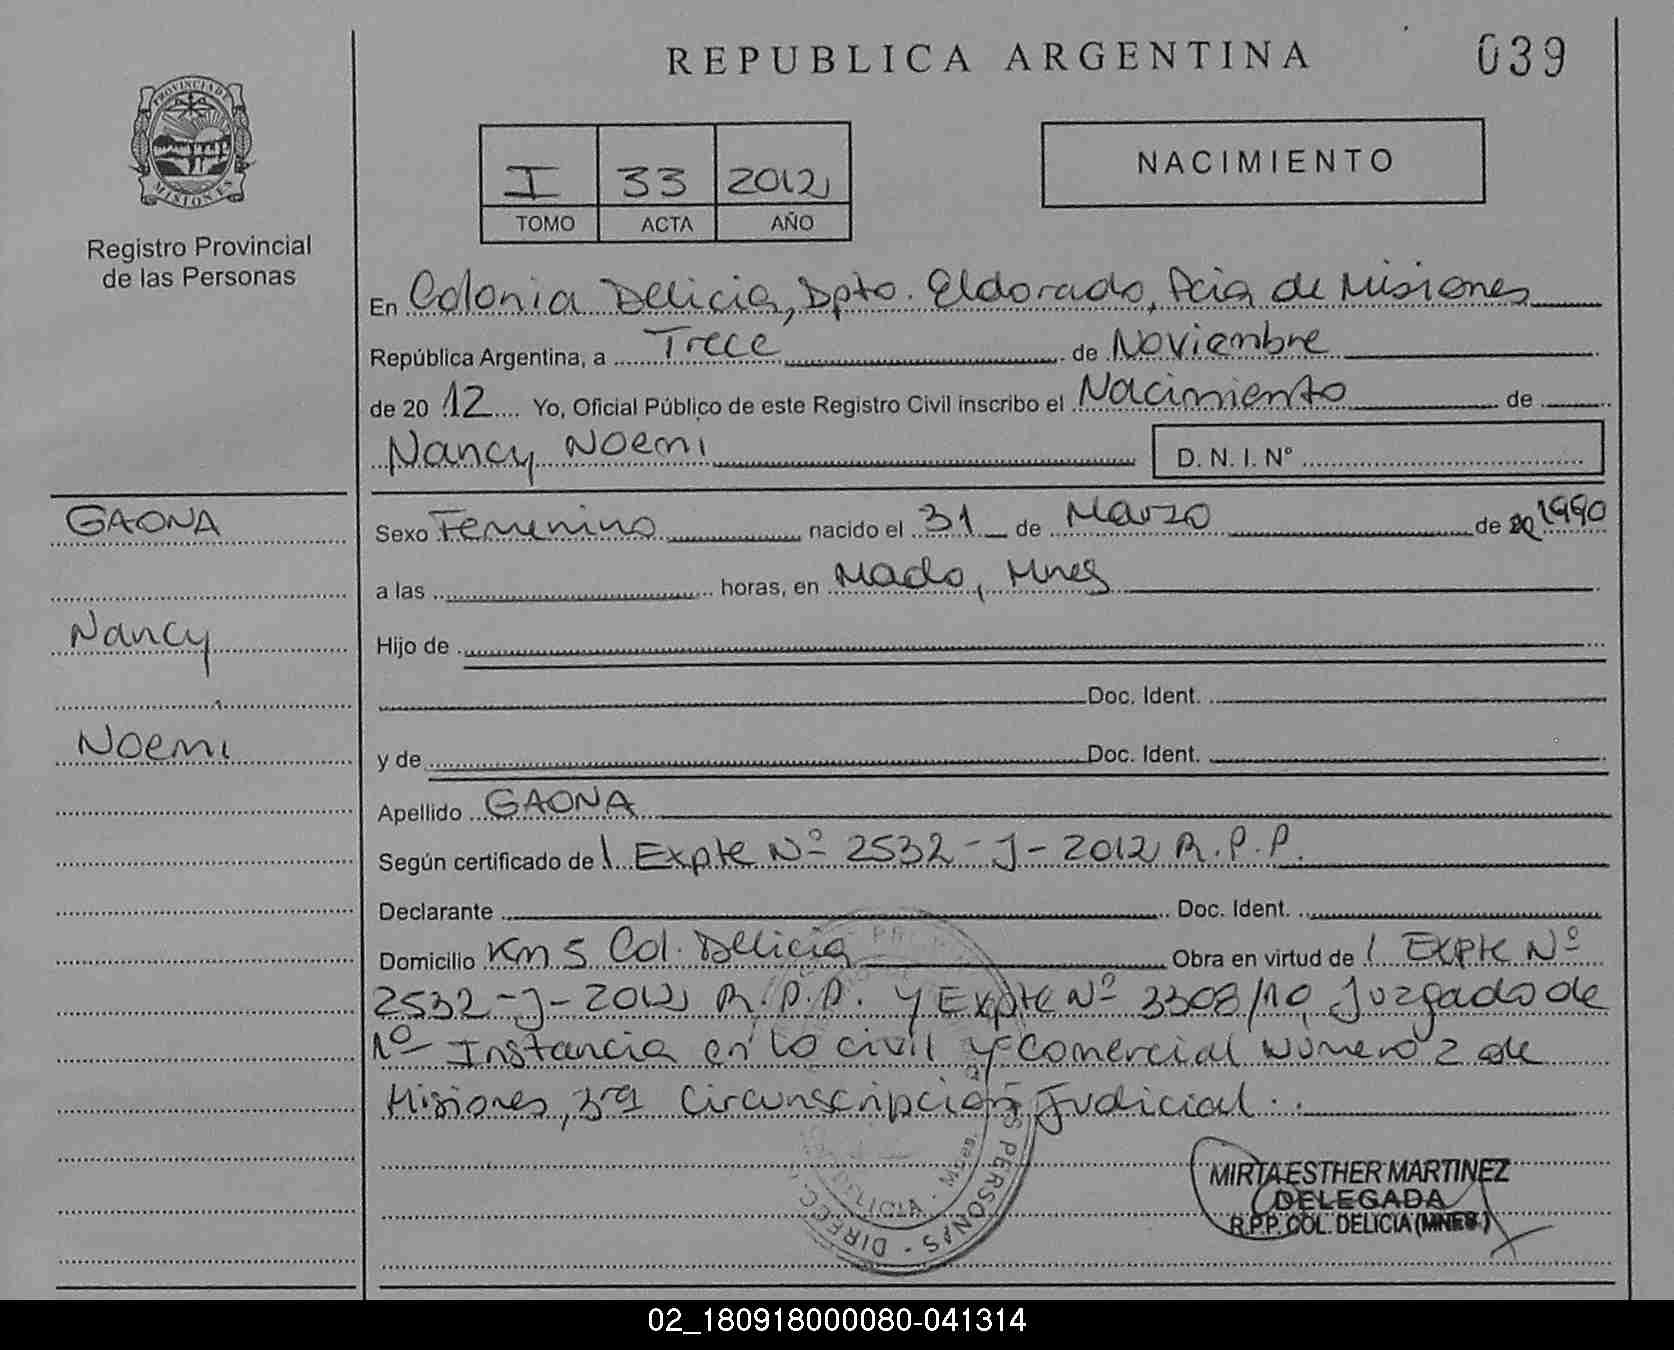 REPUBLICA ARGENTINA
039
PROVINCIA DE
MISIONES
Registro Provincial
de las Personas
I 33 2012
TOMO ACTA AÑO
NACIMIENTO
En Colonia Delicia, Dpto. Eldorado, Pcia de Misiones
República Argentina, a Trece de Noviembre
de 2012 Yo, Oficial Público de este Registro Civil inscribo el Nacimiento de
Nancy Noemi D. N. I. N°
GAONA
Nancy
Noemi
Sexo Femenino nacido el 31 de Marzo de 1990
a las horas, en Mado, Mnes
Hijo de
Doc. Ident.
y de Doc. Ident.
Apellido GAONA
Según certificado de / Expte Nº 2532-J-2012 R.P.P.
Declarante Doc. Ident.
Domicilio Km 5 Col. Delicia Obra en virtud de / Expte Nº
2532-J-2012 R.P.P. y Expte Nº 3308/10, Juzgado de
1º Instancia en lo civil y Comercial Número 2 de
Misiones, 3ra Circunscripción Judicial.
PERSONAS - DIRECC.
DELICIA - Mnes.
MIRTA ESTHER MARTINEZ
DELEGADA
R.P.P. COL. DELICIA (MNES.)
02_180918000080-041314